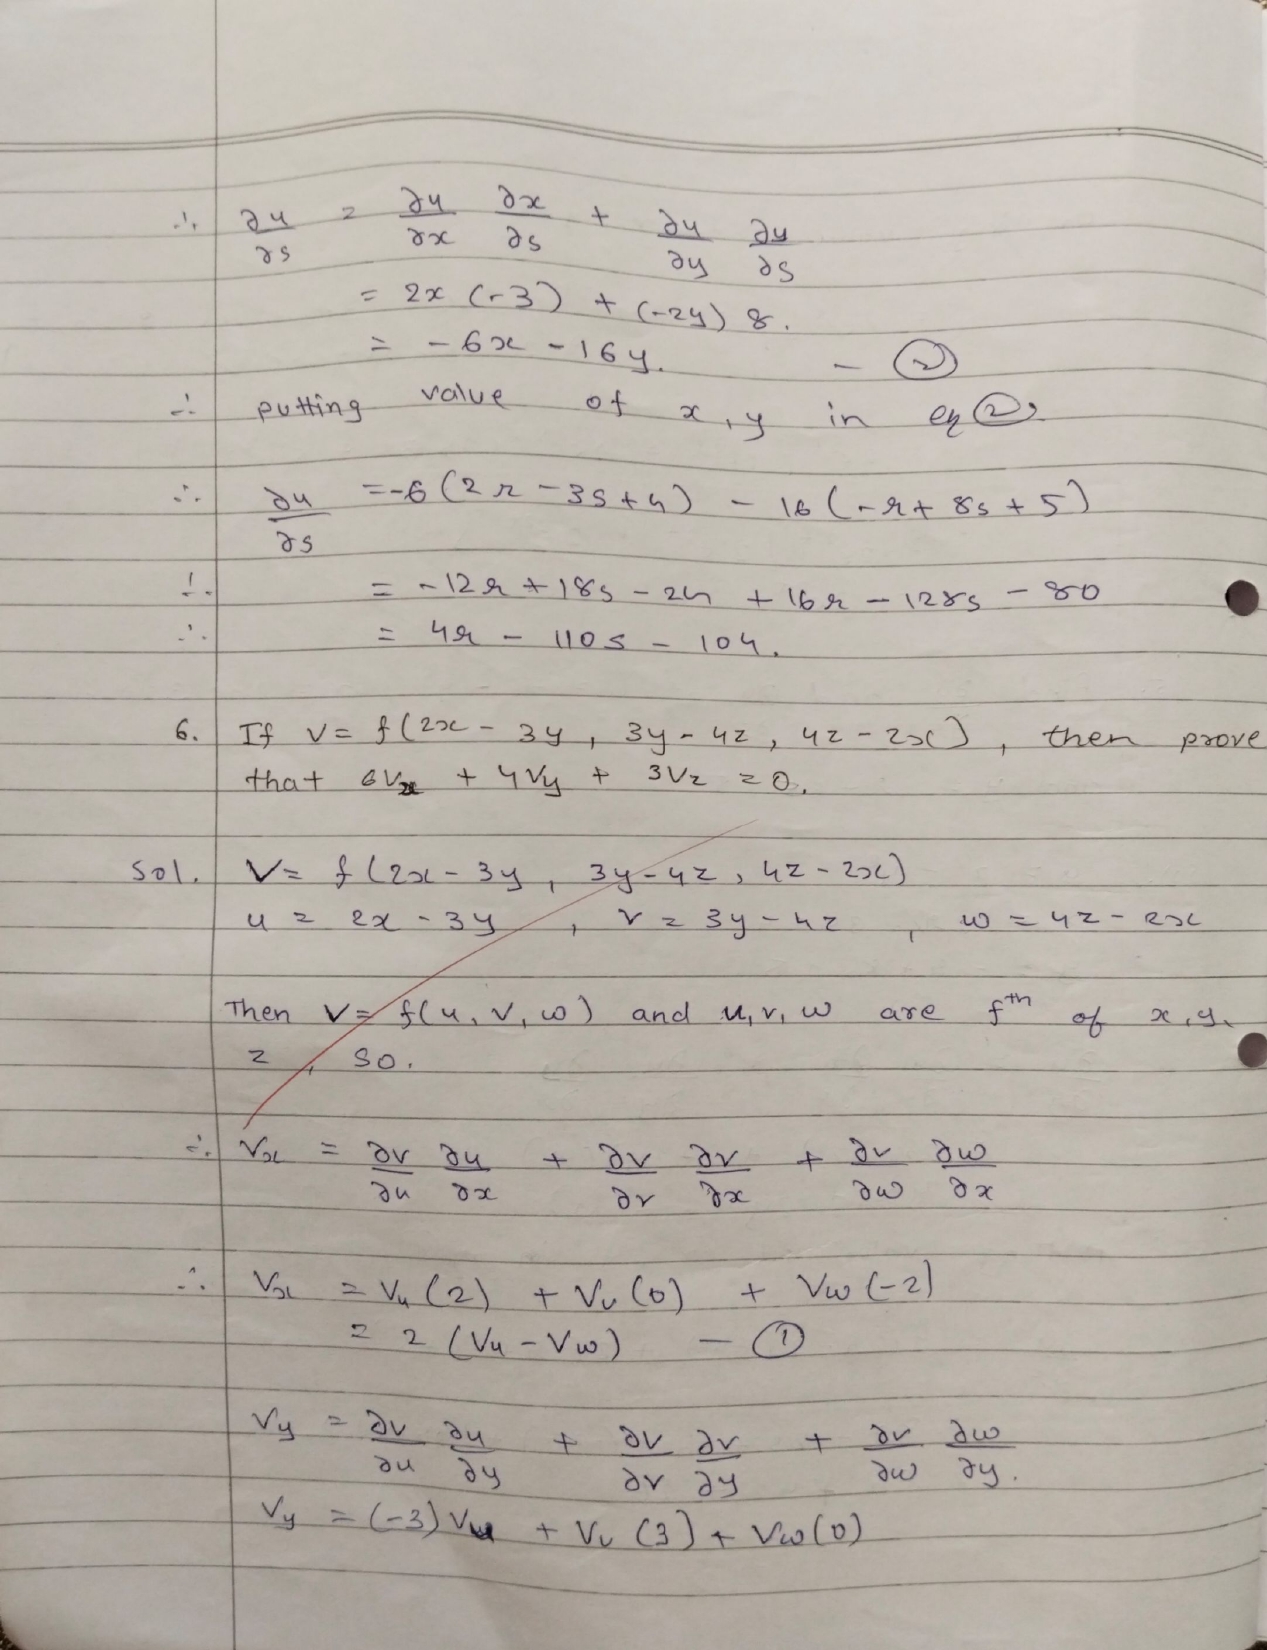 ∴ ∂u/∂s = ∂u/∂x ∂x/∂s + ∂u/∂y ∂y/∂s
= 2x (-3) + (-2y) 8.
= -6x - 16y. - ②
∴ putting value of x, y in eq ②,
∴ ∂u/∂s = -6 (2r - 3s + 4) - 16 (-r + 8s + 5)
∴ = -12r + 18s - 24 + 16r - 128s - 80
∴ = 4r - 110s - 104.
6. If V = f(2x - 3y, 3y - 4z, 4z - 2x), then prove
that 6Vx + 4Vy + 3Vz = 0.
Sol. V = f(2x - 3y, 3y - 4z, 4z - 2x)
u = 2x - 3y, v = 3y - 4z, w = 4z - 2x
Then V = f(u, v, w) and u, v, w are fth of x, y,
z, so.
∴ Vx = ∂v/∂u ∂u/∂x + ∂v/∂v ∂v/∂x + ∂v/∂w ∂w/∂x
∴ Vx = Vu (2) + Vv (0) + Vw (-2)
= 2 (Vu - Vw) - ①
Vy = ∂v/∂u ∂u/∂y + ∂v/∂v ∂v/∂y + ∂v/∂w ∂w/∂y.
Vy = (-3) Vu + Vv (3) + Vw (0)